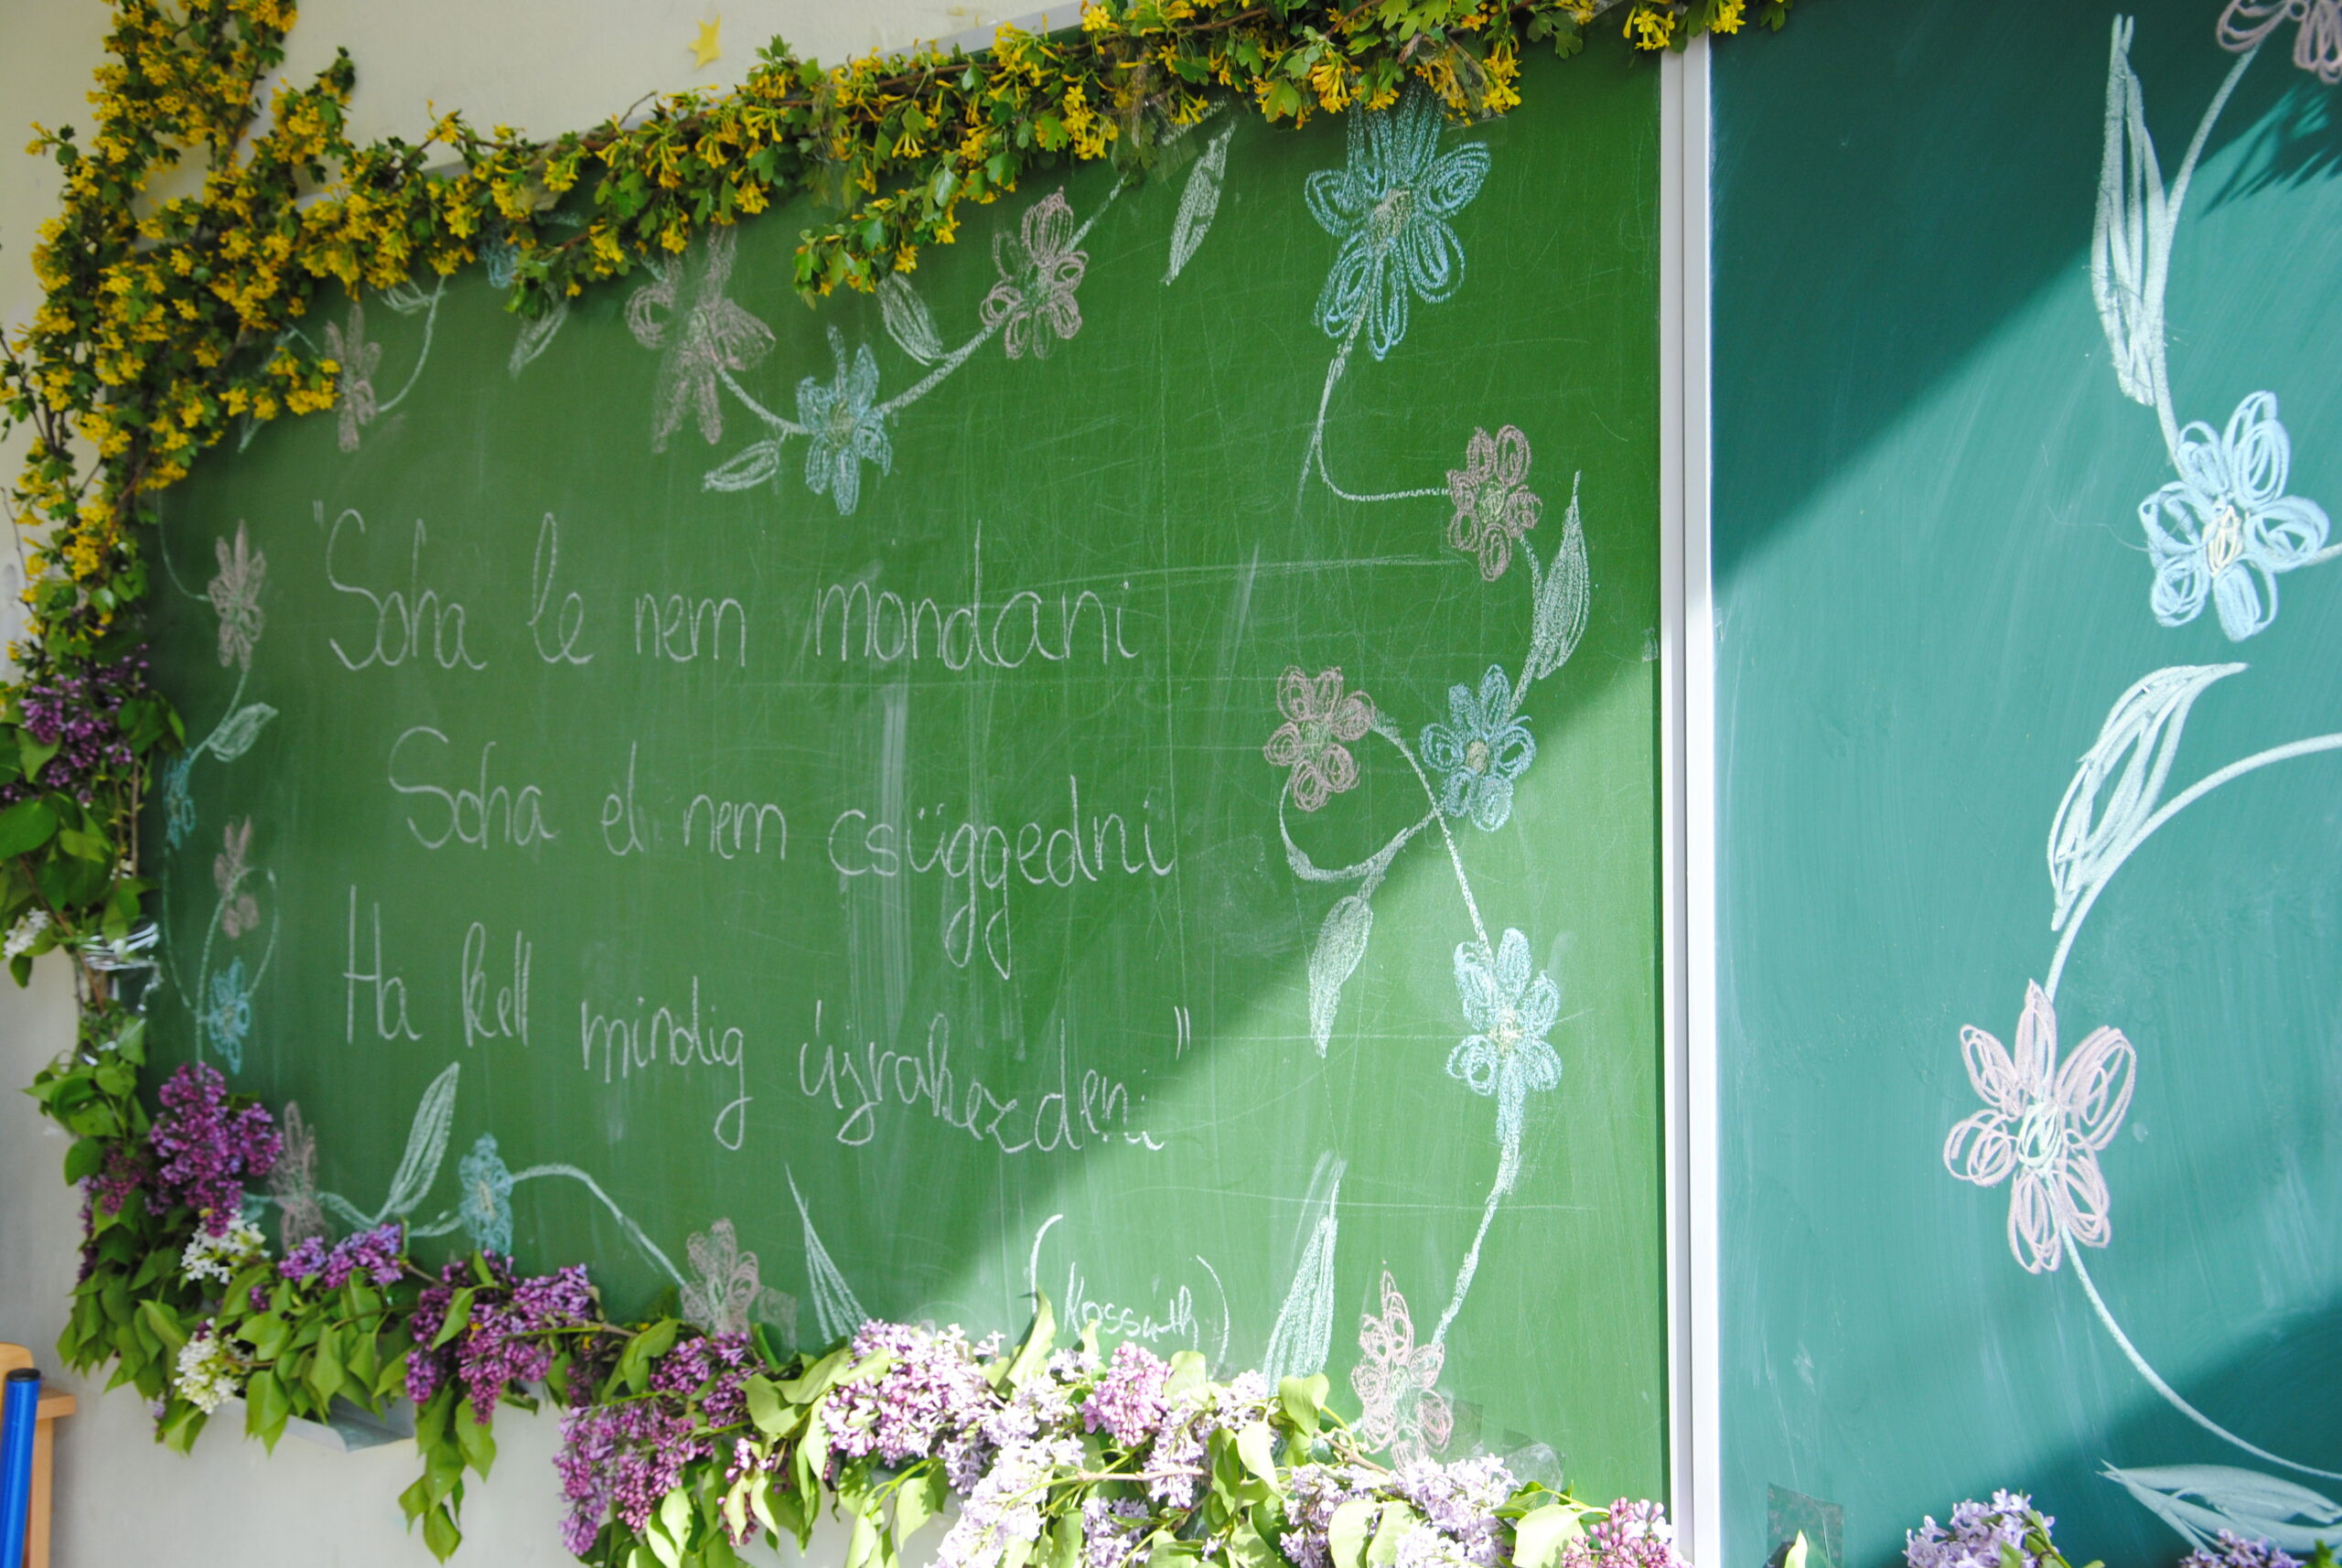 "Soha le nem mondani
Soha el nem csüggedni
Ha kell mindig újrakezdeni"
(Kossuth)